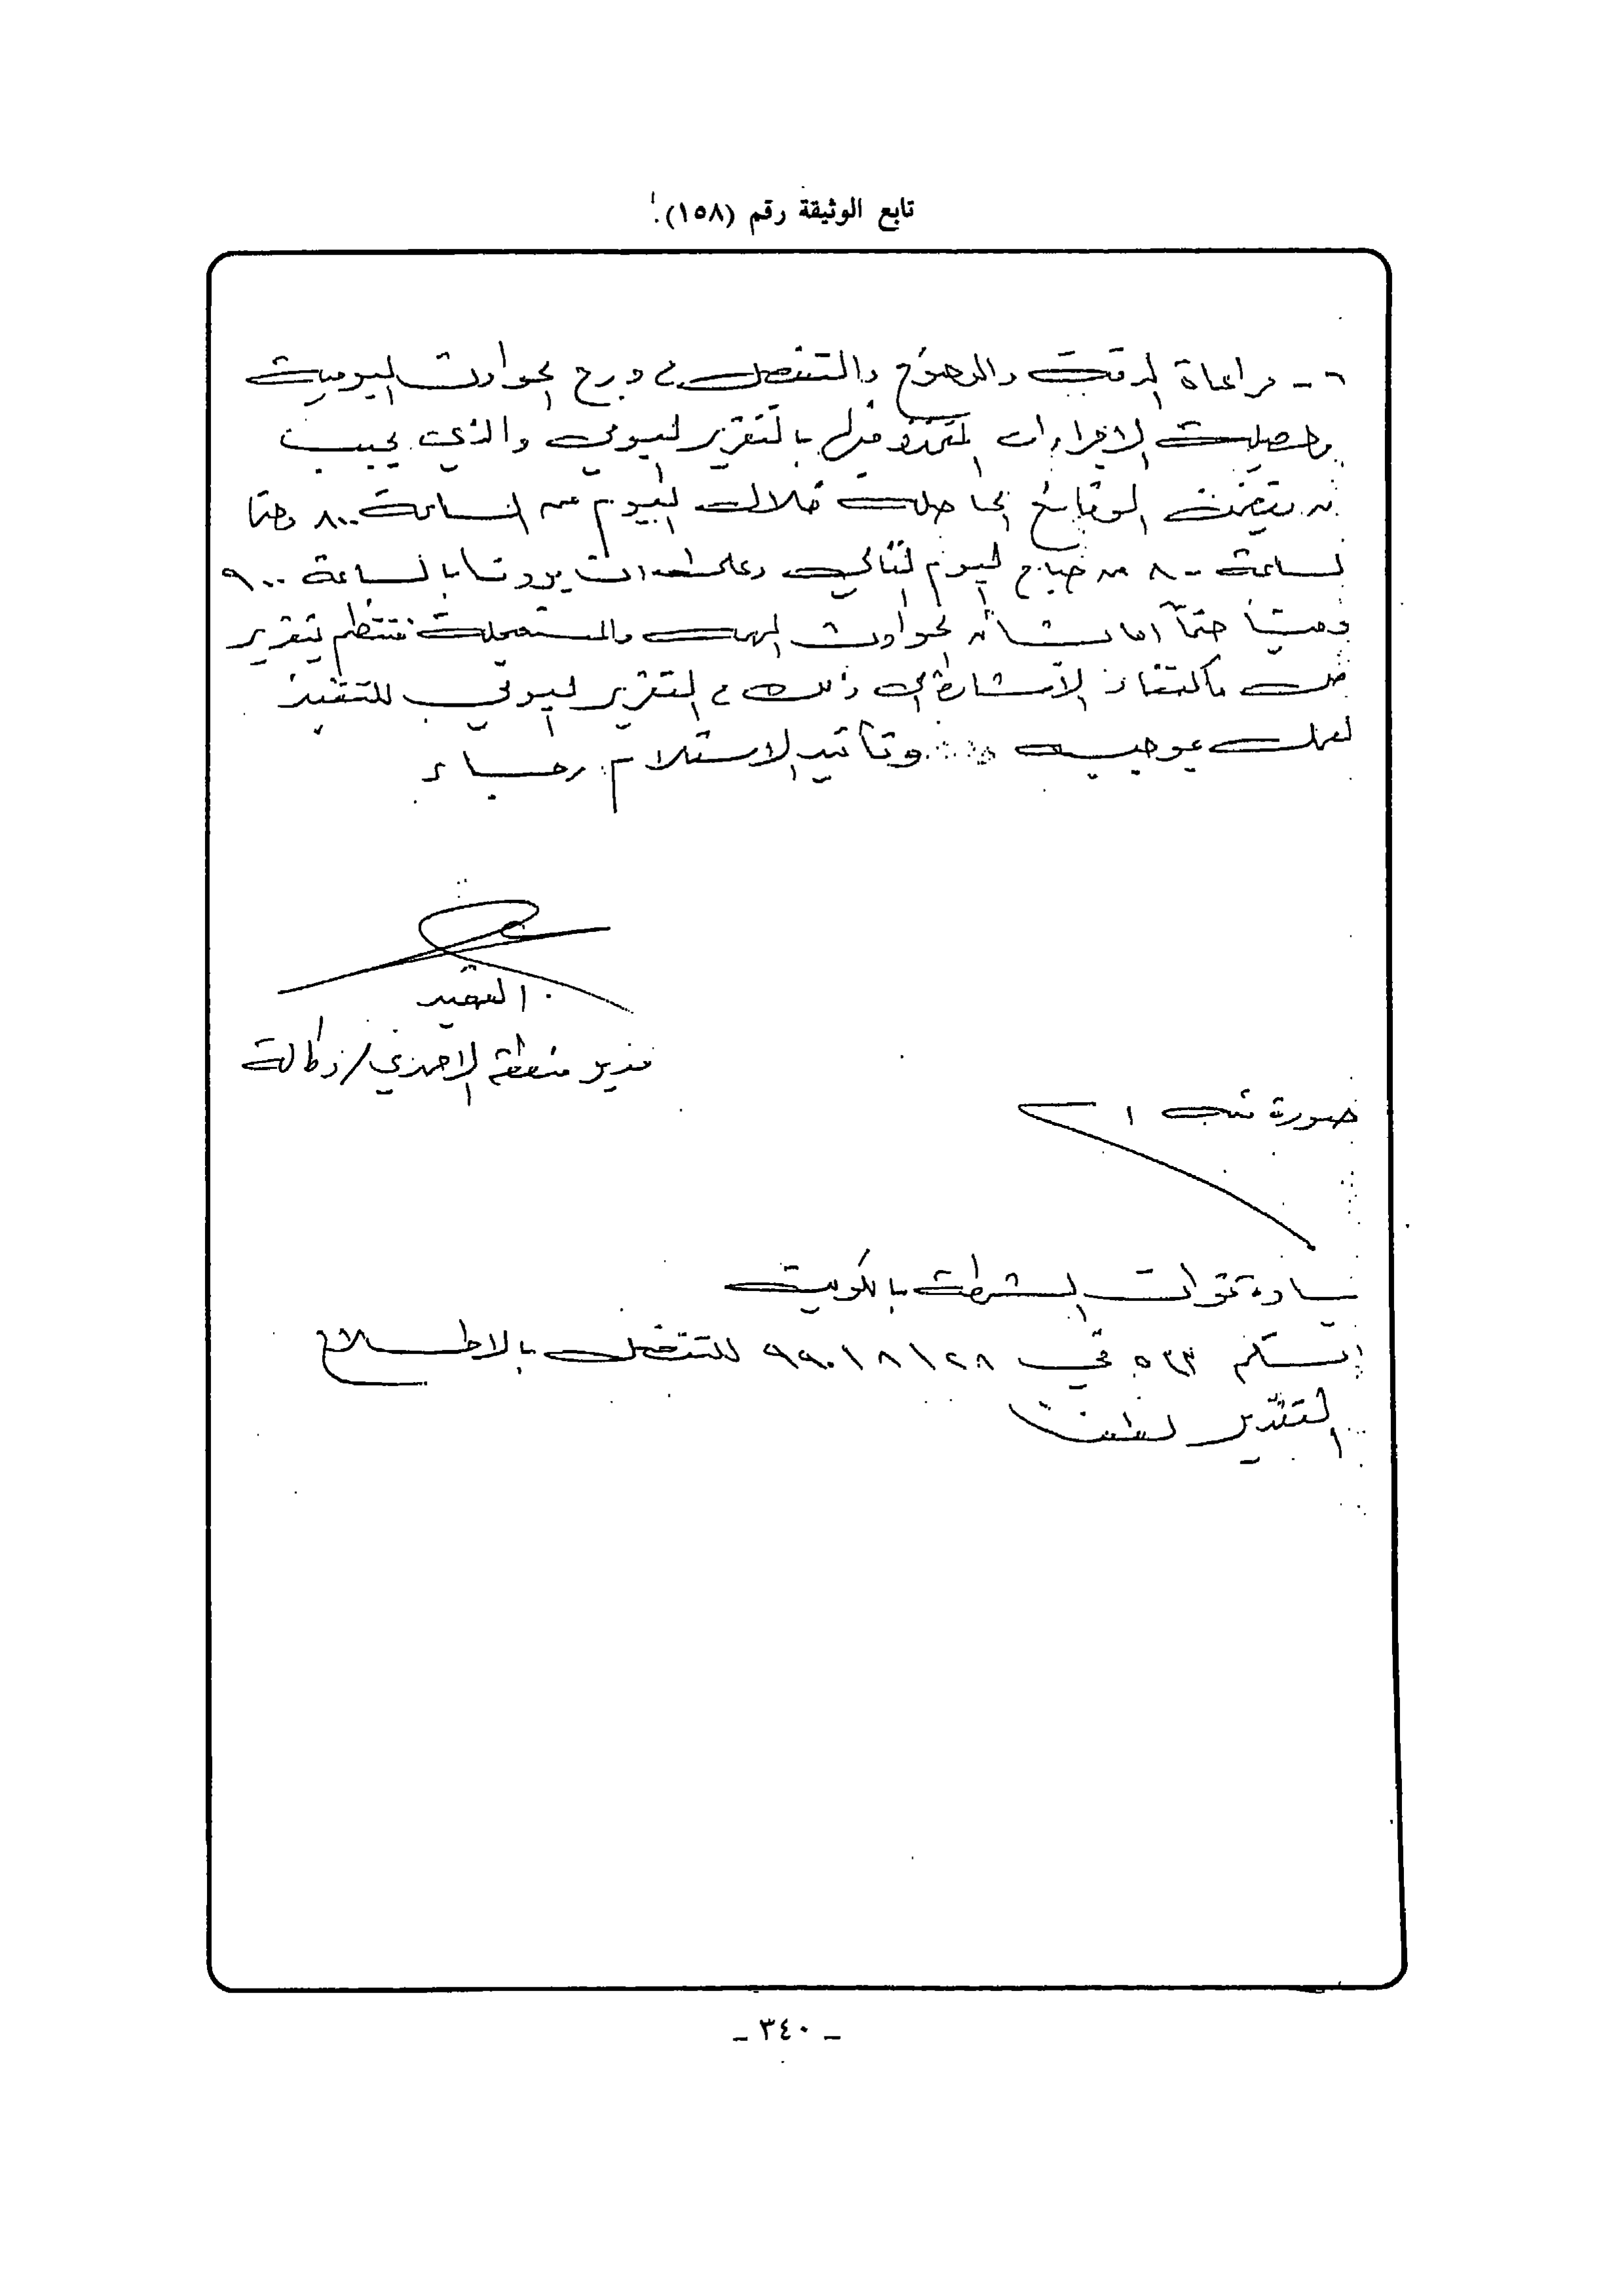 تابع الوثيقة رقم (١٥٨)
٦- مراعاة الدقة والوضوح والتفصيل في درج الحوادث اليومية
وحصيلة الاجراءات المتخذه فيها بالتقرير اليومي والذي يجب
ان يتضمن الوقائع الحاصلة خلال اليوم من الساعة ٨٠٠
لساعة ٨٠٠ من صباح اليوم التالي وعلى ان يردنا بالساعة ٩٠٠
حتماً اما بشأن الحوادث المهمة والمستعجلة فتنظم بتقرير
الاشارة الى ذلك في التقرير اليومي للتنفيذ
العمل بموجبه وتأييد الاستلام رجاء
العقيد
مدير منطقة الاحمدي/وكالة
صورة منه الى
قيادة قوات الشرطة بالكويت
٥٢٣ في ٢٨/٨/٩٩٠ للتفضل بالاطلاع
التقدير لطفا
- ٣٤٠ -